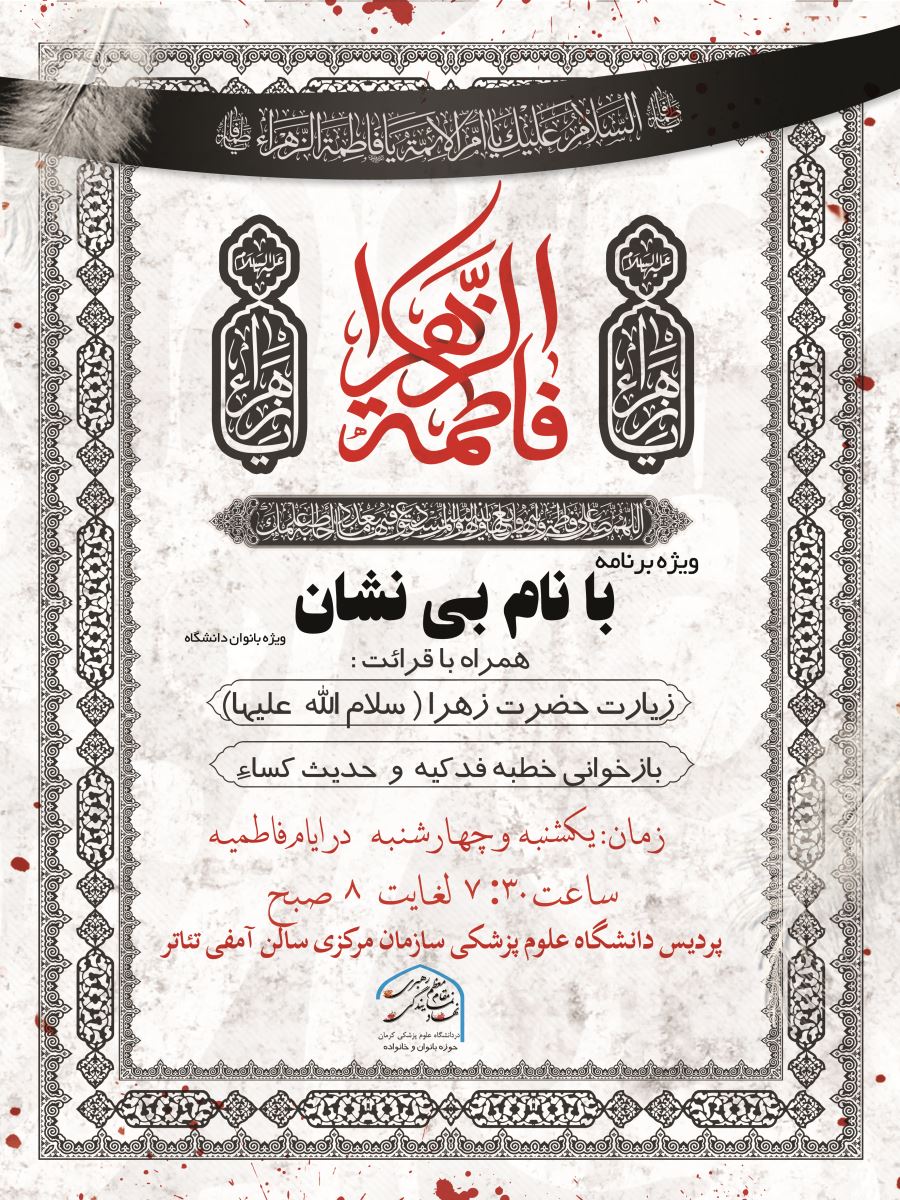 السلام علیك یا ام الائمة یا فاطمة الزهراء
فاطمة الزهرا
علیها السلام
یا زهراء
علیها السلام
یا زهراء
اللهم صل علی فاطمة و ابیها و بعلها و بنیها و السر المستودع فیها بعدد ما احاط به علمك
ویژه برنامه
با نام بی نشان
ویژه بانوان دانشگاه
همراه با قرائت :
زیارت حضرت زهرا ( سلام الله علیها)
بازخوانی خطبه فدکیه و حدیث کساءِ
زمان: یکشنبه و چهارشنبه در ایام فاطمیه
ساعت ۷:۳۰ لغایت ۸ صبح
پردیس دانشگاه علوم پزشکی سازمان مرکزی سالن آمفی تئاتر
نهاد نمایندگی مقام معظم رهبری
در دانشگاه علوم پزشکی کرمان
حوزه بانوان و خانواده